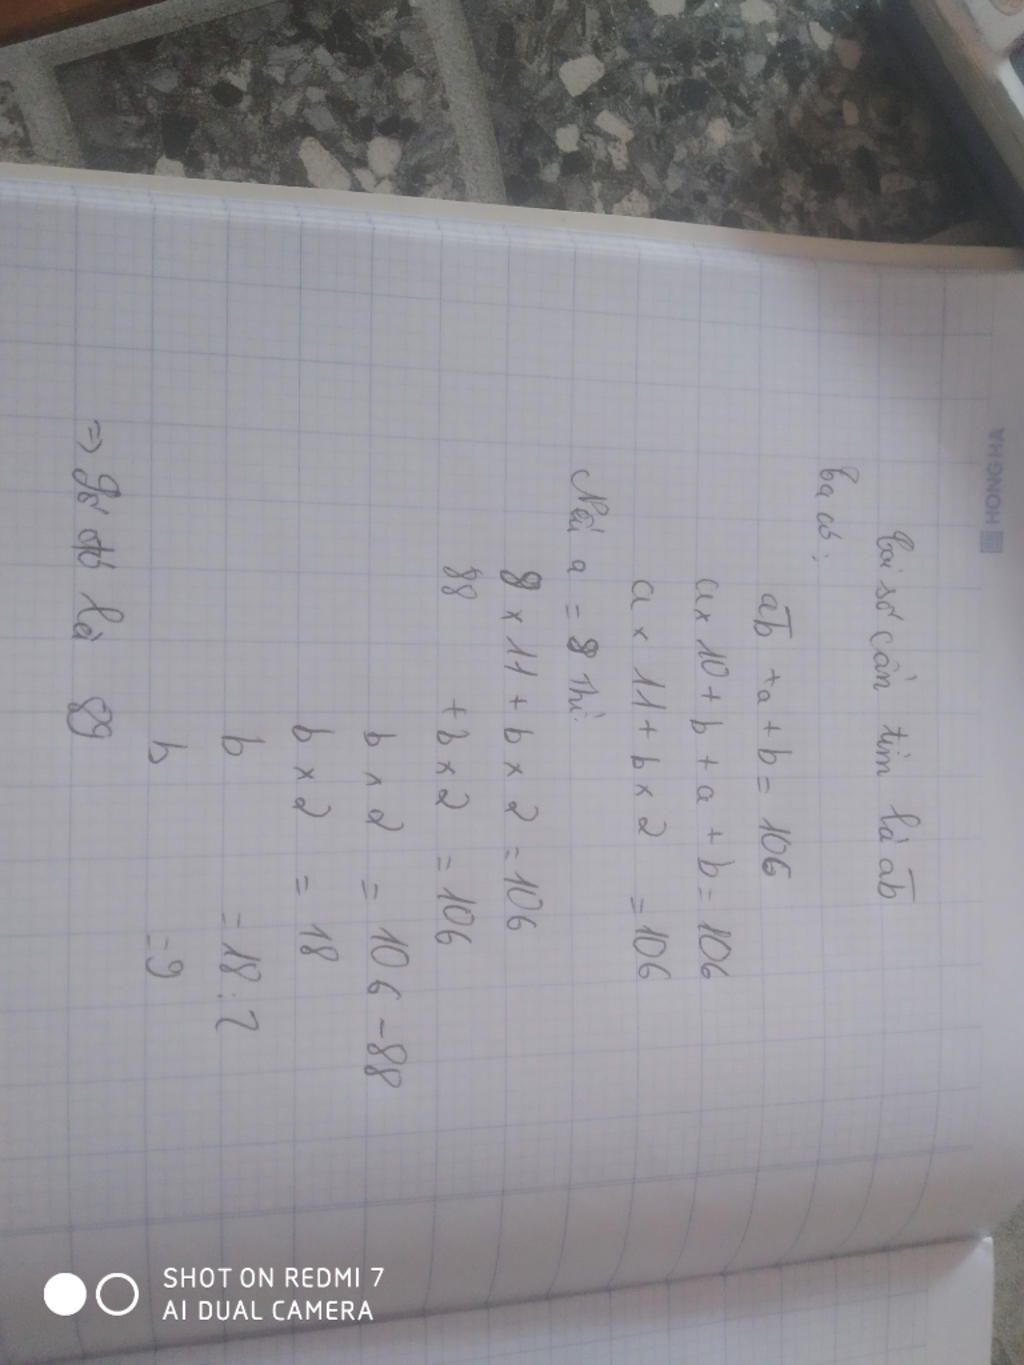 HONGHA
Gọi số cần tìm là a̅b̅
Ta có:
a̅b̅ + a + b = 106
a x 10 + b + a + b = 106
a x 11 + b x 2 = 106
Nếu a = 8 thì
8 x 11 + b x 2 = 106
88 + b x 2 = 106
b x 2 = 106 - 88
b x 2 = 18
b = 18 : 2
b = 9
=> Số đó là 89
SHOT ON REDMI 7
AI DUAL CAMERA